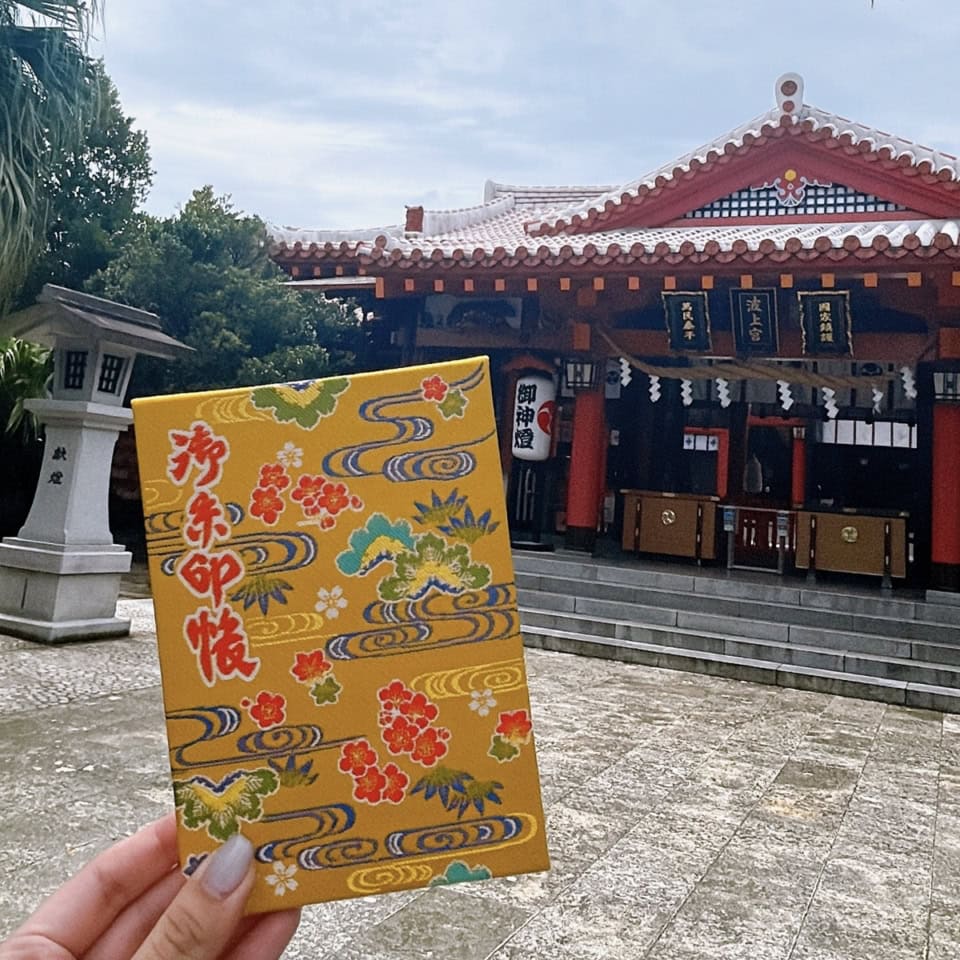 御朱印帳
萬民泰平
波上宮
國家鎮護
御神燈
献燈